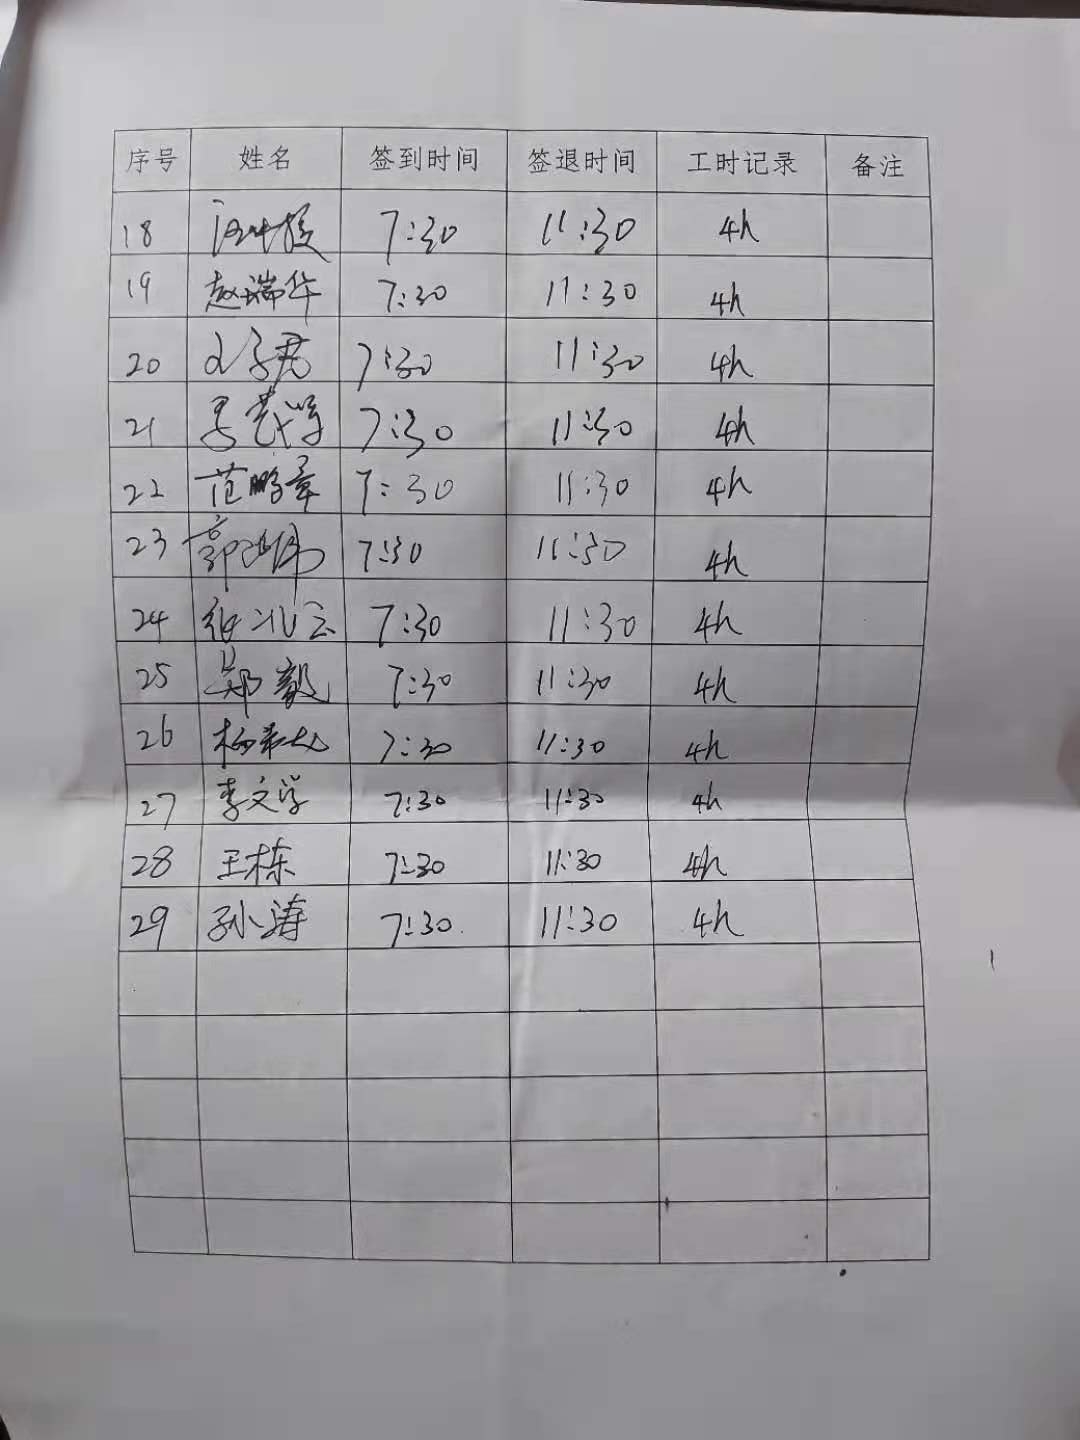 序号 姓名 签到时间 签退时间 工时记录 备注
18 7:30 11:30 4h
19 赵瑞华 7:30 11:30 4h
20 7:30 11:30 4h
21 7:30 11:30 4h
22 范鹏章 7:30 11:30 4h
23 郭 7:30 11:30 4h
24 7:30 11:30 4h
25 郑毅 7:30 11:30 4h
26 杨 7:30 11:30 4h
27 李文学 7:30 11:30 4h
28 王栋 7:30 11:30 4h
29 孙小涛 7:30 11:30 4h